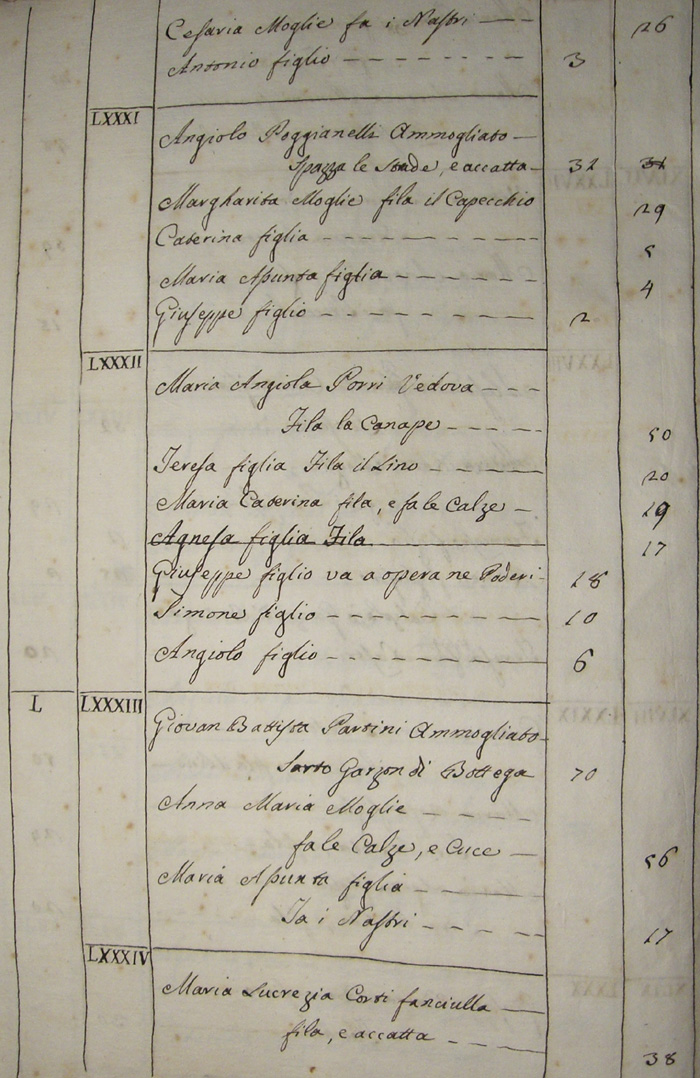 Cesaria Moglie fa i Nastri 26
Antonio figlio 3
LXXXI
Angiolo Poggianelli Ammogliato
Spazza le Strade, e accatta 32 32
Margharita Moglie fila il Capecchio 29
Caterina figlia 5
Maria Asunta figlia 4
Giuseppe figlio 2
LXXXII
Maria Angiola Porri Vedova
Fila la Canape 50
Teresa figlia Fila il Lino 20
Maria Caterina fila, e fa le Calze 19
Agnesa figlia Fila 17
Giuseppe figlio va a opera ne Poderi 18
Simone figlio 10
Angiolo figlio 6
L LXXXIII
Giovan Battista Partini Ammogliato
Sarto Garzon di Bottega 70
Anna Maria Moglie
fa le Calze, e Cuce 56
Maria Asunta figlia
Fa i Nastri 17
LXXXIV
Maria Lucrezia Corti fanciulla
fila, e accatta 38